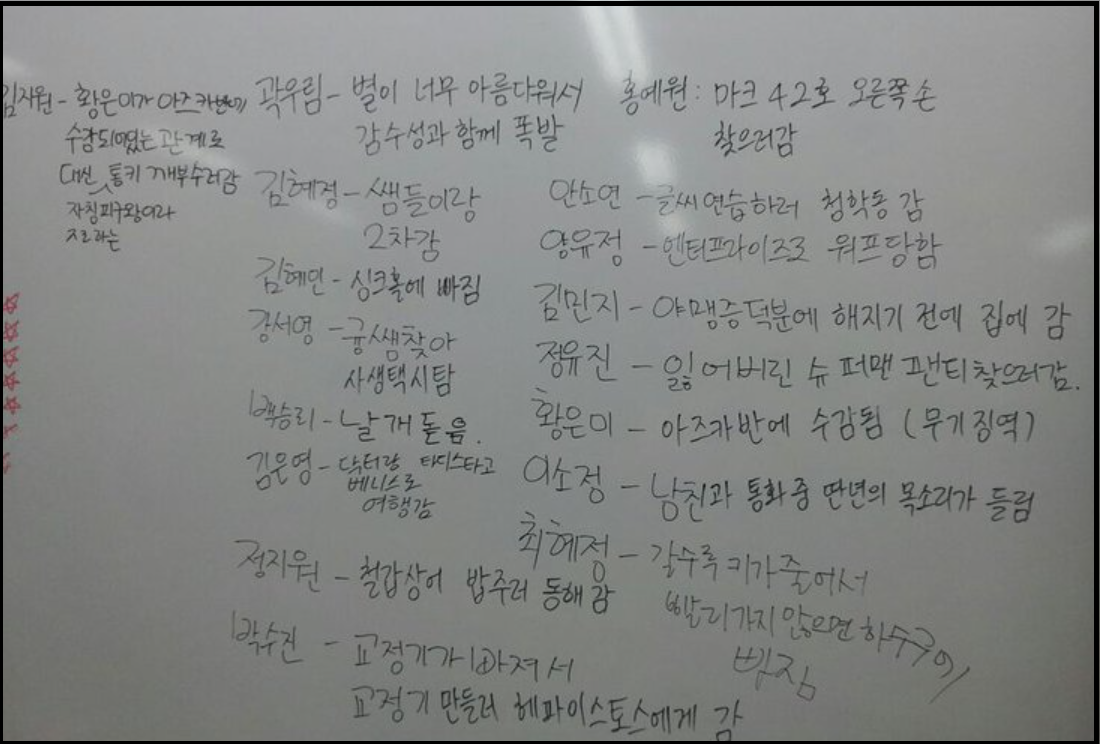 김지원 - 황은미가 아즈카반에
수감되어있는 관계로
대신 통키 깨부수러감
자칭피구왕이라
지르라는
곽우림 - 별이 너무 아름다워서
감수성과 함께 폭발
김혜정 - 쌤들이랑
2차감
김혜인 - 싱크홀에 빠짐
강서영 - 귱쌤찾아
사생택시탐
백승리 - 날개돋음.
김은영 - 닥터랑 타디스타고
베니스로
여행감
정지원 - 철갑상어 밥주러 동해감
박수진 - 교정기가 빠져서
교정기 만들러 헤파이스토스에게 감
홍예원: 마크 42호 오른쪽 손
찾으러감
안소연 - 글씨연습하러 청학동 감
양유정 - 엔터프라이즈로 워프당함
김민지 - 야맹증덕분에 해지기 전에 집에 감
정유진 - 잃어버린 슈퍼맨 팬티찾으러감.
황은미 - 아즈카반에 수감됨 (무기징역)
이소정 - 남친과 통화 중 딴년의 목소리가 들림
최혜정 - 갈수록 키가줄어서
빨리가지 않으면 하수구에
빠짐